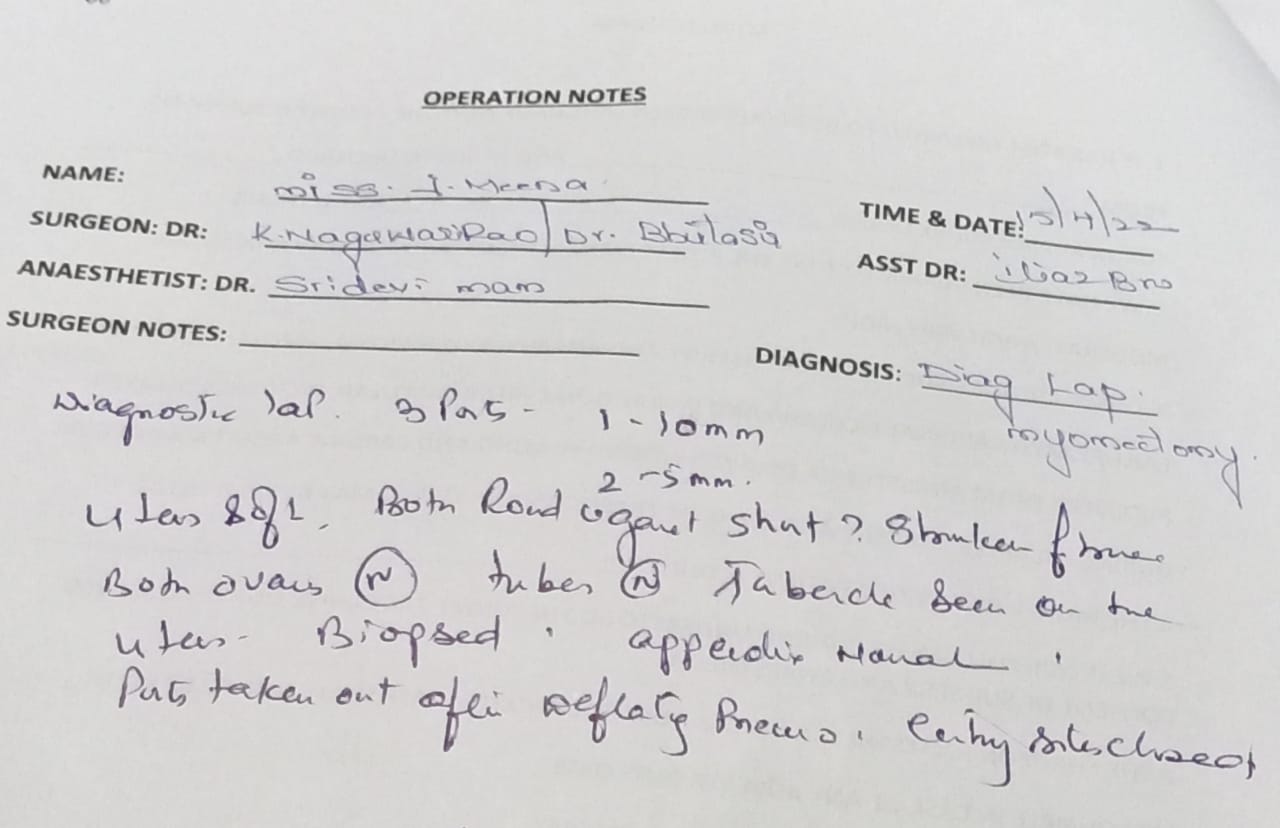 OPERATION NOTES
NAME: Miss. J. Meena
TIME & DATE: 15/4/22
SURGEON: DR: Dr.
ASST DR: iliaz Bro
ANAESTHETIST: DR. Sridevi mam
SURGEON NOTES:
DIAGNOSIS: Diag Lap.
myomectomy.
Diagnostic lap. 3 Ports - 1 - 10mm
2 - 5mm.
Both Round shut ?
Both ovaries (N) tubes (N) Tubercle seen on the
uterus. Biopsed. appendix Normal.
Ports taken out after deflatig Pneumo. Entry sites closed